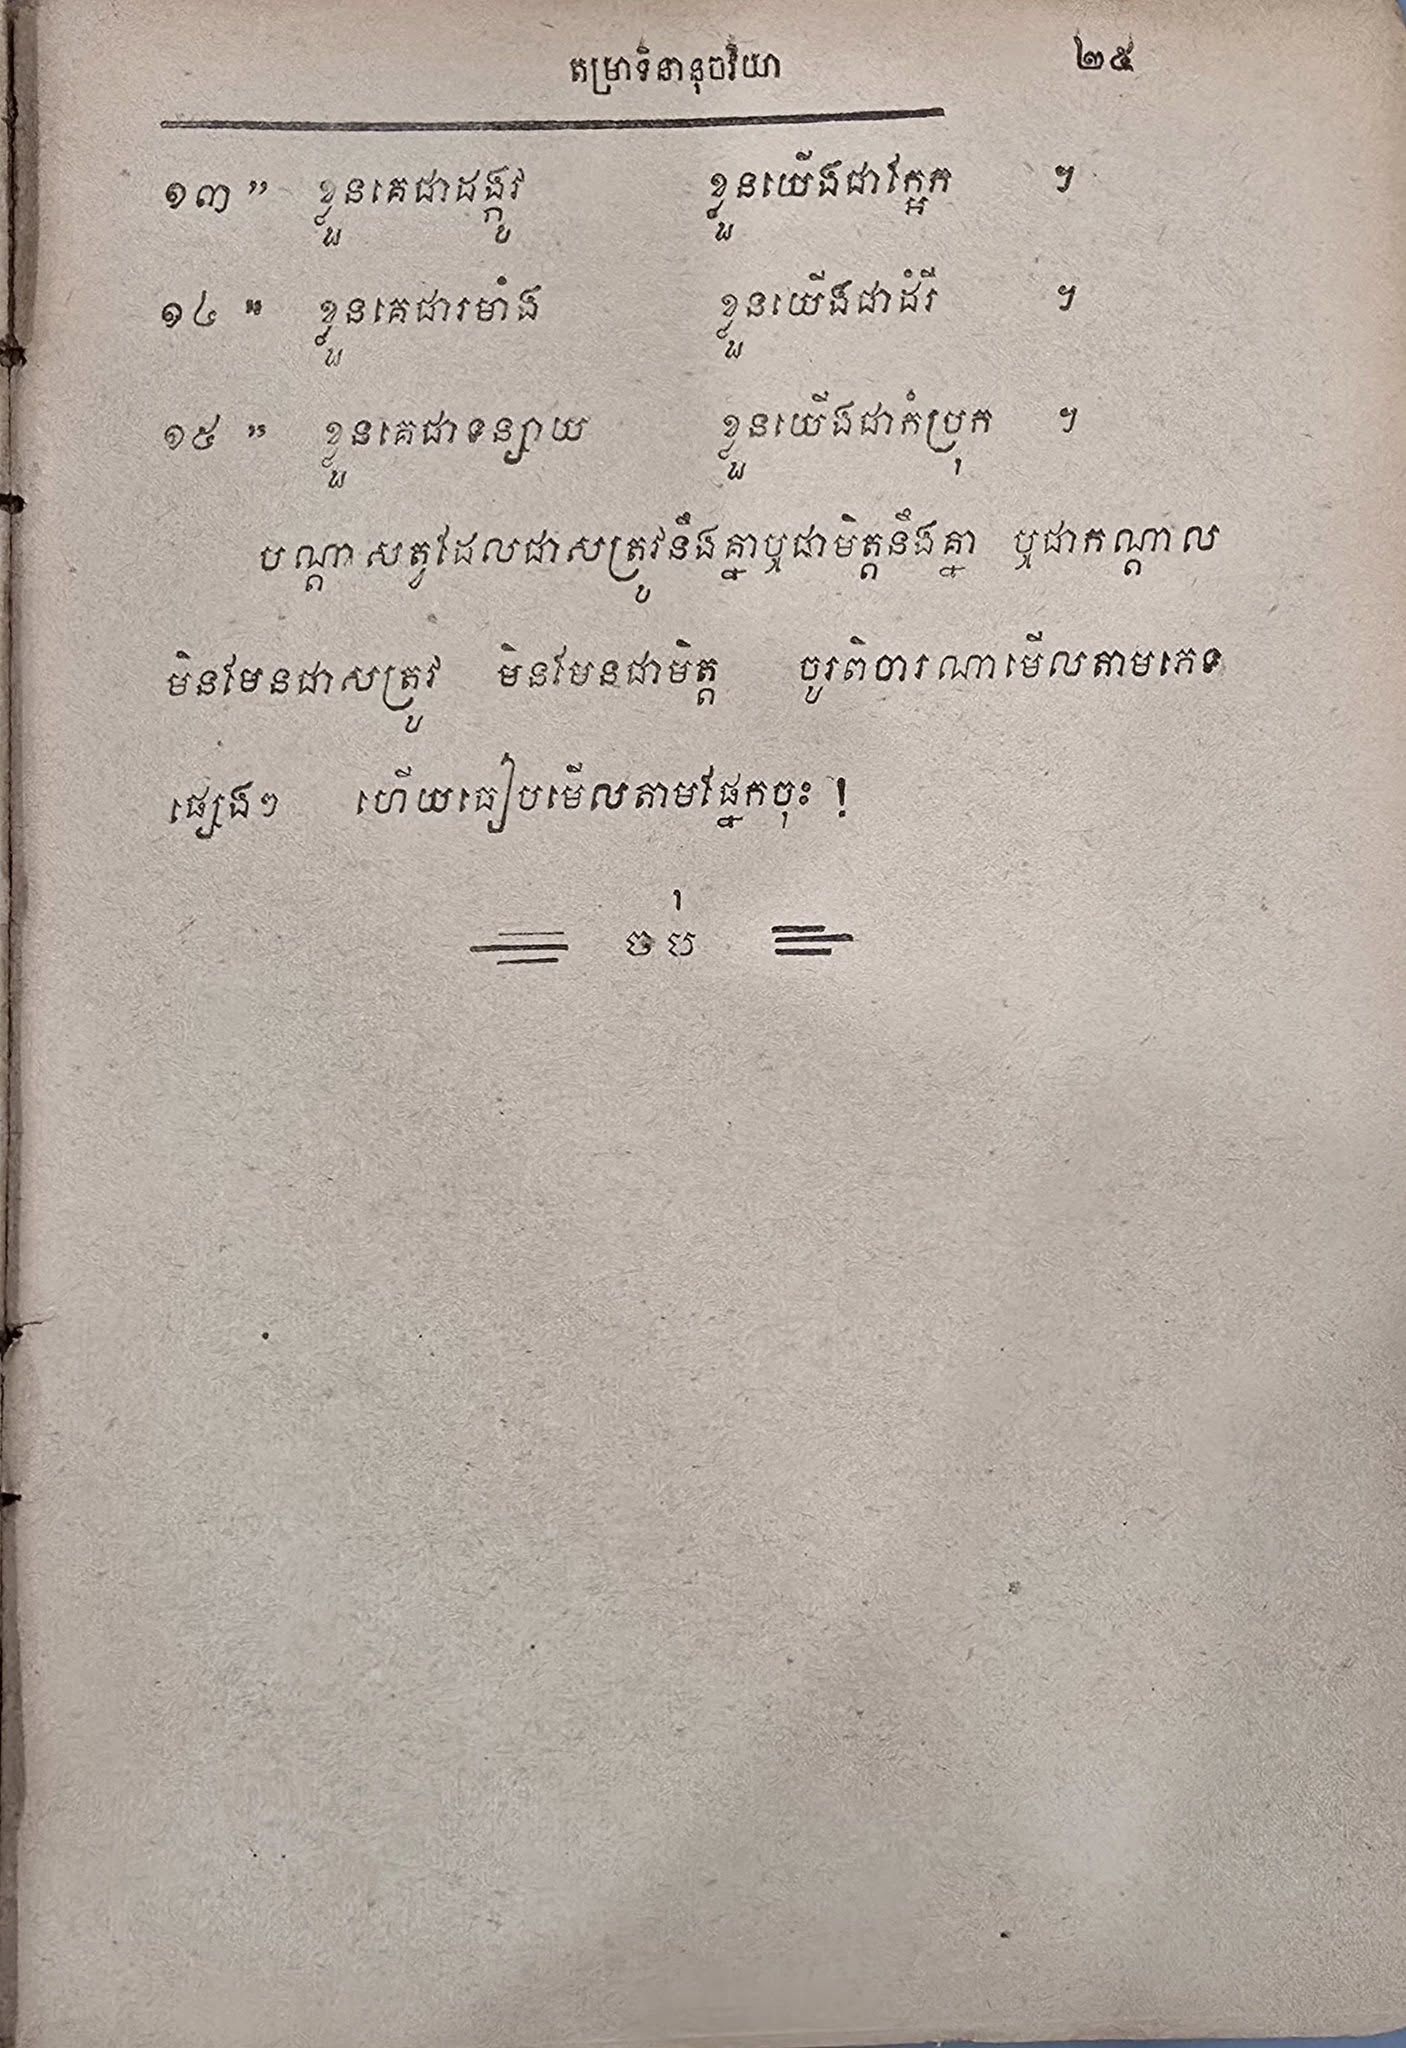 តម្រាទិនានុចរិយា ២៥
១៣ " ខ្លួនគេជាដង្កូវ ខ្លួនយើងជាក្អែក ។
១៤ " ខ្លួនគេជារមាំង ខ្លួនយើងជាដំរី ។
១៥ " ខ្លួនគេជាទន្សាយ ខ្លួនយើងជាកំប្រុក ។
បណ្ដាសត្វដែលជាសត្រូវនឹងគ្នាឬជាមិត្តនឹងគ្នា ឬជាកណ្ដាល
មិនមែនជាសត្រូវ មិនមែនជាមិត្ត ចូរពិចារណាមើលតាមភេទ
ផ្សេងៗ ហើយធៀបមើលតាមផ្នែកចុះ !
ចប់